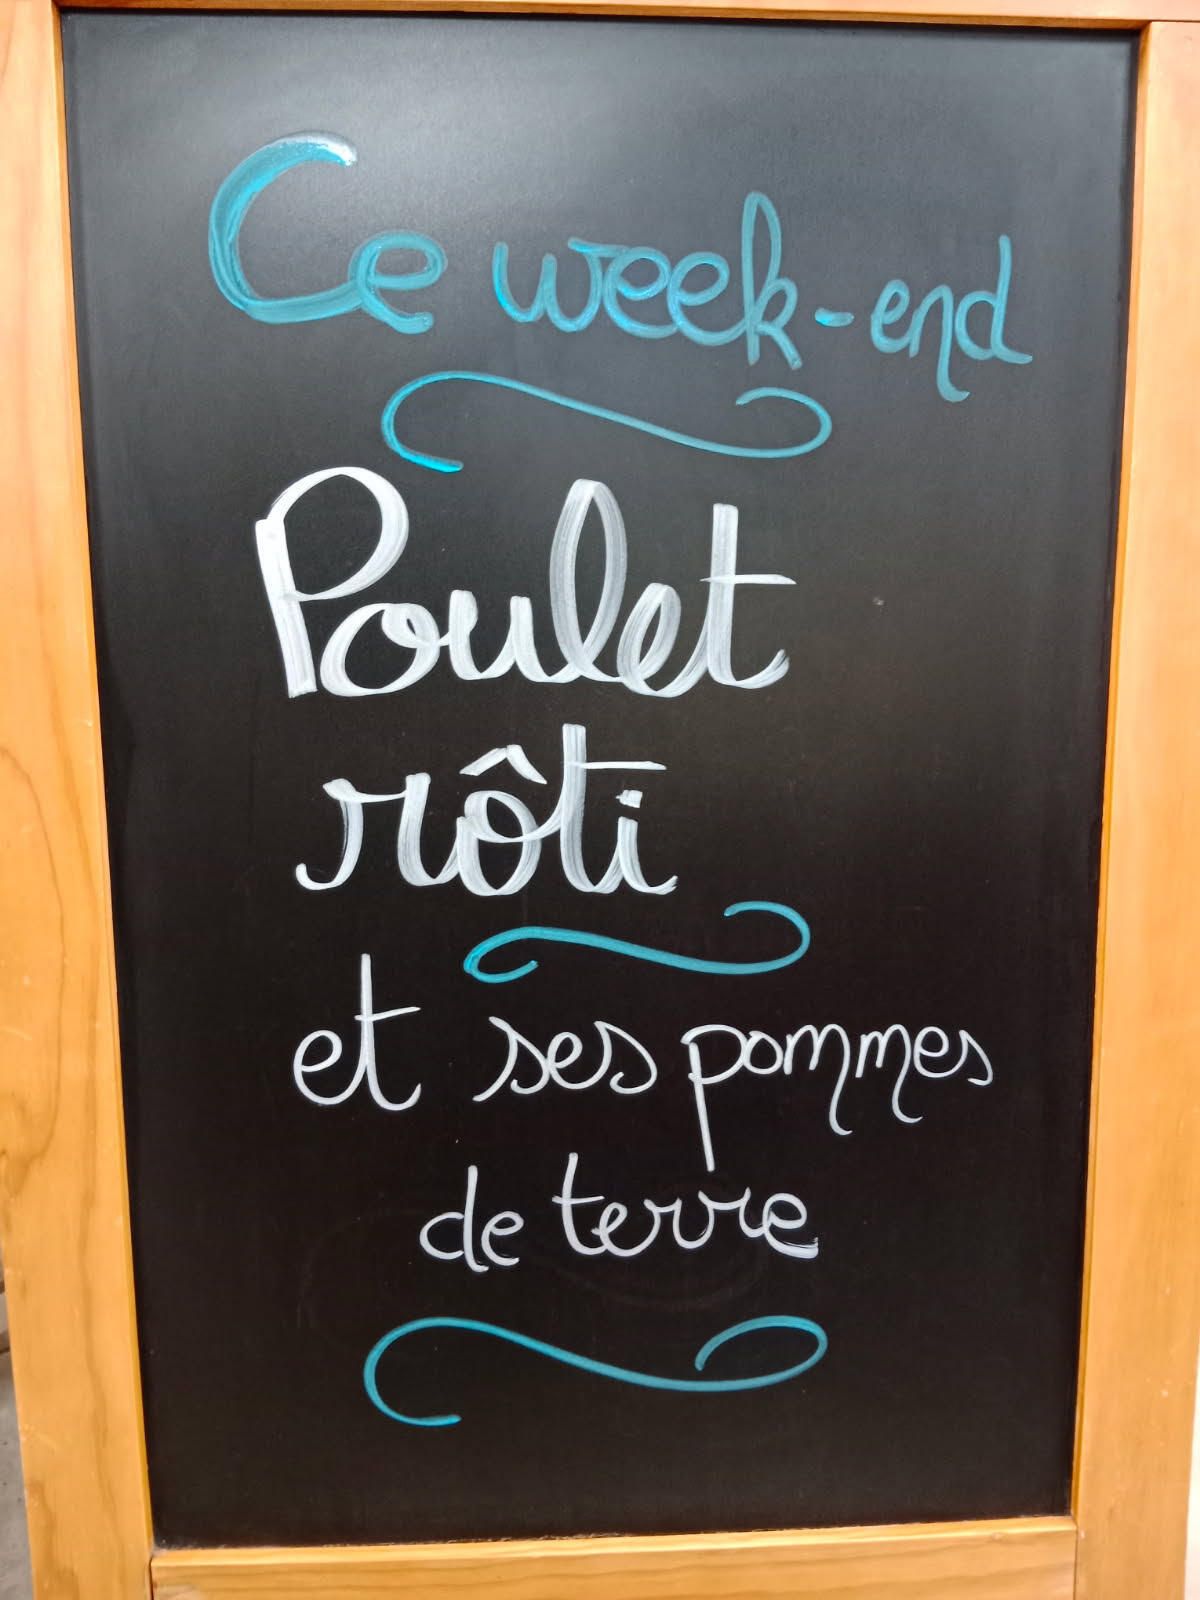 Ce week-end
Poulet
rôti
et ses pommes
de terre